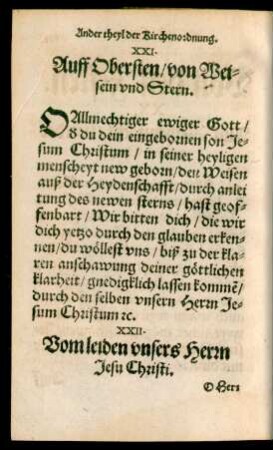 Ander theyl der Kirchenordnung.
XXI.
Auff Obersten/von Wei-
sein vnd Stern.
O Allmechtiger ewiger Gott/
d̕ du dein eingebornen son Je-
sum Christum/in seiner heyligen
menscheyt new geborn/den Weisen
auß der Heydenschafft/durch anlei
tung des newen sterns/hast geof-
fenbart/Wir bitten dich/die wir
dich yetzo durch den glauben erken-
nen/du wöllest vns/biß zu der kla-
ren anschawung deiner göttlichen
klarheit/gnedigklich lassen kommē/
durch den selben vnsern Herrn Je-
sum Christum ꝛc.
XXII.
Vom leiden vnsers Herrn
Jesu Christi.
O Herr